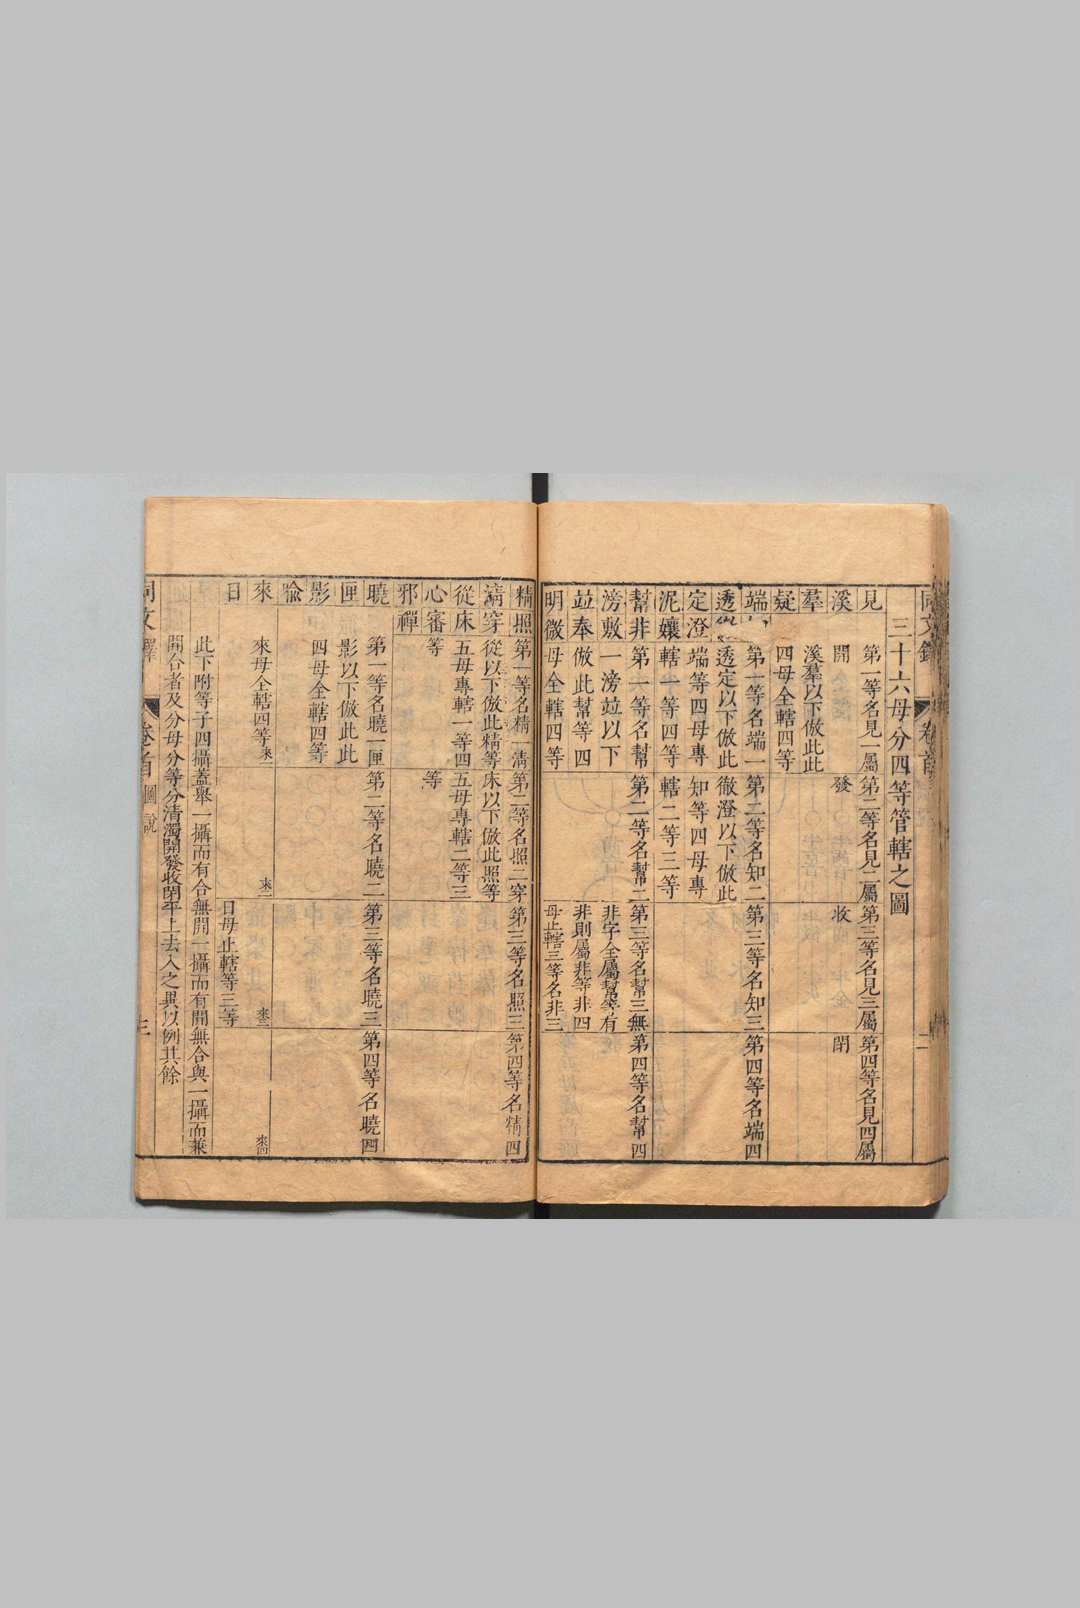 三十六母分四等管轄之圖
見 第一等名見一屬 第二等名見二屬 第三等名見三屬 第四等名見四屬
溪 開 發 收 閉
羣 溪羣以下倣此此
疑 四母全轄四等
端 第一等名端一 第二等名知二 第三等名知三 第四等名端四
透 透定以下倣此 徹澄以下倣此
定澄 端等四母專 知等四母專
泥孃 轄一等四等 轄二等三等
幫非 第一等名幫 第二等名幫二 第三等名幫三無 第四等名幫四
滂敷 一滂竝以下 非字全屬幫等有
竝奉 倣此幫等四 非則屬非等非四
明微 母全轄四等 母止轄三等名非三
精照 第一等名精一清 第二等名照二穿 第三等名照三 第四等名精四
清穿 從以下倣此精等 床以下倣此照等
從床 五母專轄一等四 五母專轄二等三
心審 等 等
邪禪
曉 第一等名曉一匣 第二等名曉二 第三等名曉三 第四等名曉四
匣 影以下倣此此
影 四母全轄四等
喩
來 來母全轄四等 來一 來二 來三 來四
日 日母止轄等三等
此下附等子四攝蓋舉一攝而有合無開一攝而有開無合與一攝而兼
開合者及分母分等分清濁開發收閉平上去入之異以例其餘
卷首 圖說 三